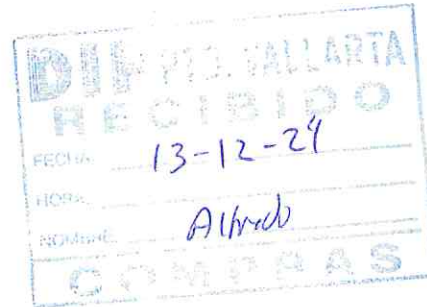 DIF PTO. VALLARTA
RECIBIDO
FECHA 13-12-24
HORA
NOMBRE Alfredo
COMPRAS